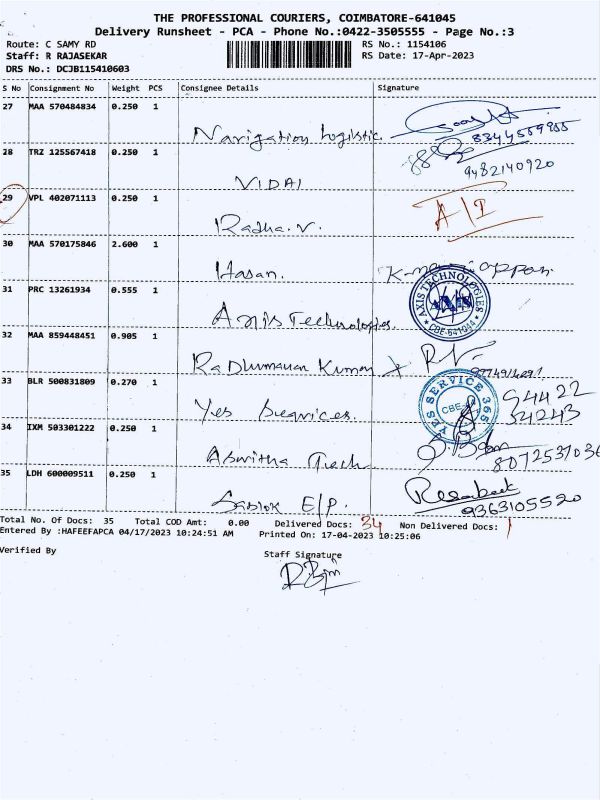 THE PROFESSIONAL COURIERS, COIMBATORE-641045
Delivery Runsheet - PCA - Phone No.:0422-3505555 - Page No.:3
Route: C SAMY RD RS No.: 1154106
Staff: R RAJASEKAR RS Date: 17-Apr-2023
DRS No.: DCJB115410603
S No Consignment No Weight PCS Consignee Details Signature
27 MAA 570484834 0.250 1
Navigation Logistic
28 TRZ 125567418 0.250 1
9482140920
VIDAI
29 VPL 402071113 0.250 1
A/I
Radha.V.
30 MAA 570175846 2.600 1
Hasan.
31 PRC 13261934 0.555 1
AXIS TECHNOLOGIES
CBE-641014
Axis Technologies.
32 MAA 859448451 0.905 1
Kumar
33 BLR 500831809 0.270 1
YES SERVICE 365
CBE
94422
54243
Yes
34 IXM 503301222 0.250 1
Tech
35 LDH 600009511 0.250 1
9363105520
E/P.
Total No. Of Docs: 35 Total COD Amt: 0.00 Delivered Docs: 34 Non Delivered Docs: 1
Entered By :HAFEEFAPCA 04/17/2023 10:24:51 AM Printed On: 17-04-2023 10:25:06
Verified By Staff Signature